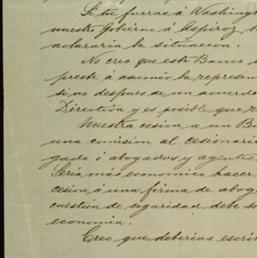 Si tú fueras á Washing
nuestro Gobierno á Aspiroz,
aclararia la situacion.
No creo que este Banco
preste á asumir la represen
si no despues de un acuerdo
Direction y es posible que r
Nuestra cesion a un B
una comision al cesionari
gado ó abogados y agentes
Seria más economico hacer
cesion á una firma de abog
cuestion de seguridad debe so
economia.
Creo que deberias escri